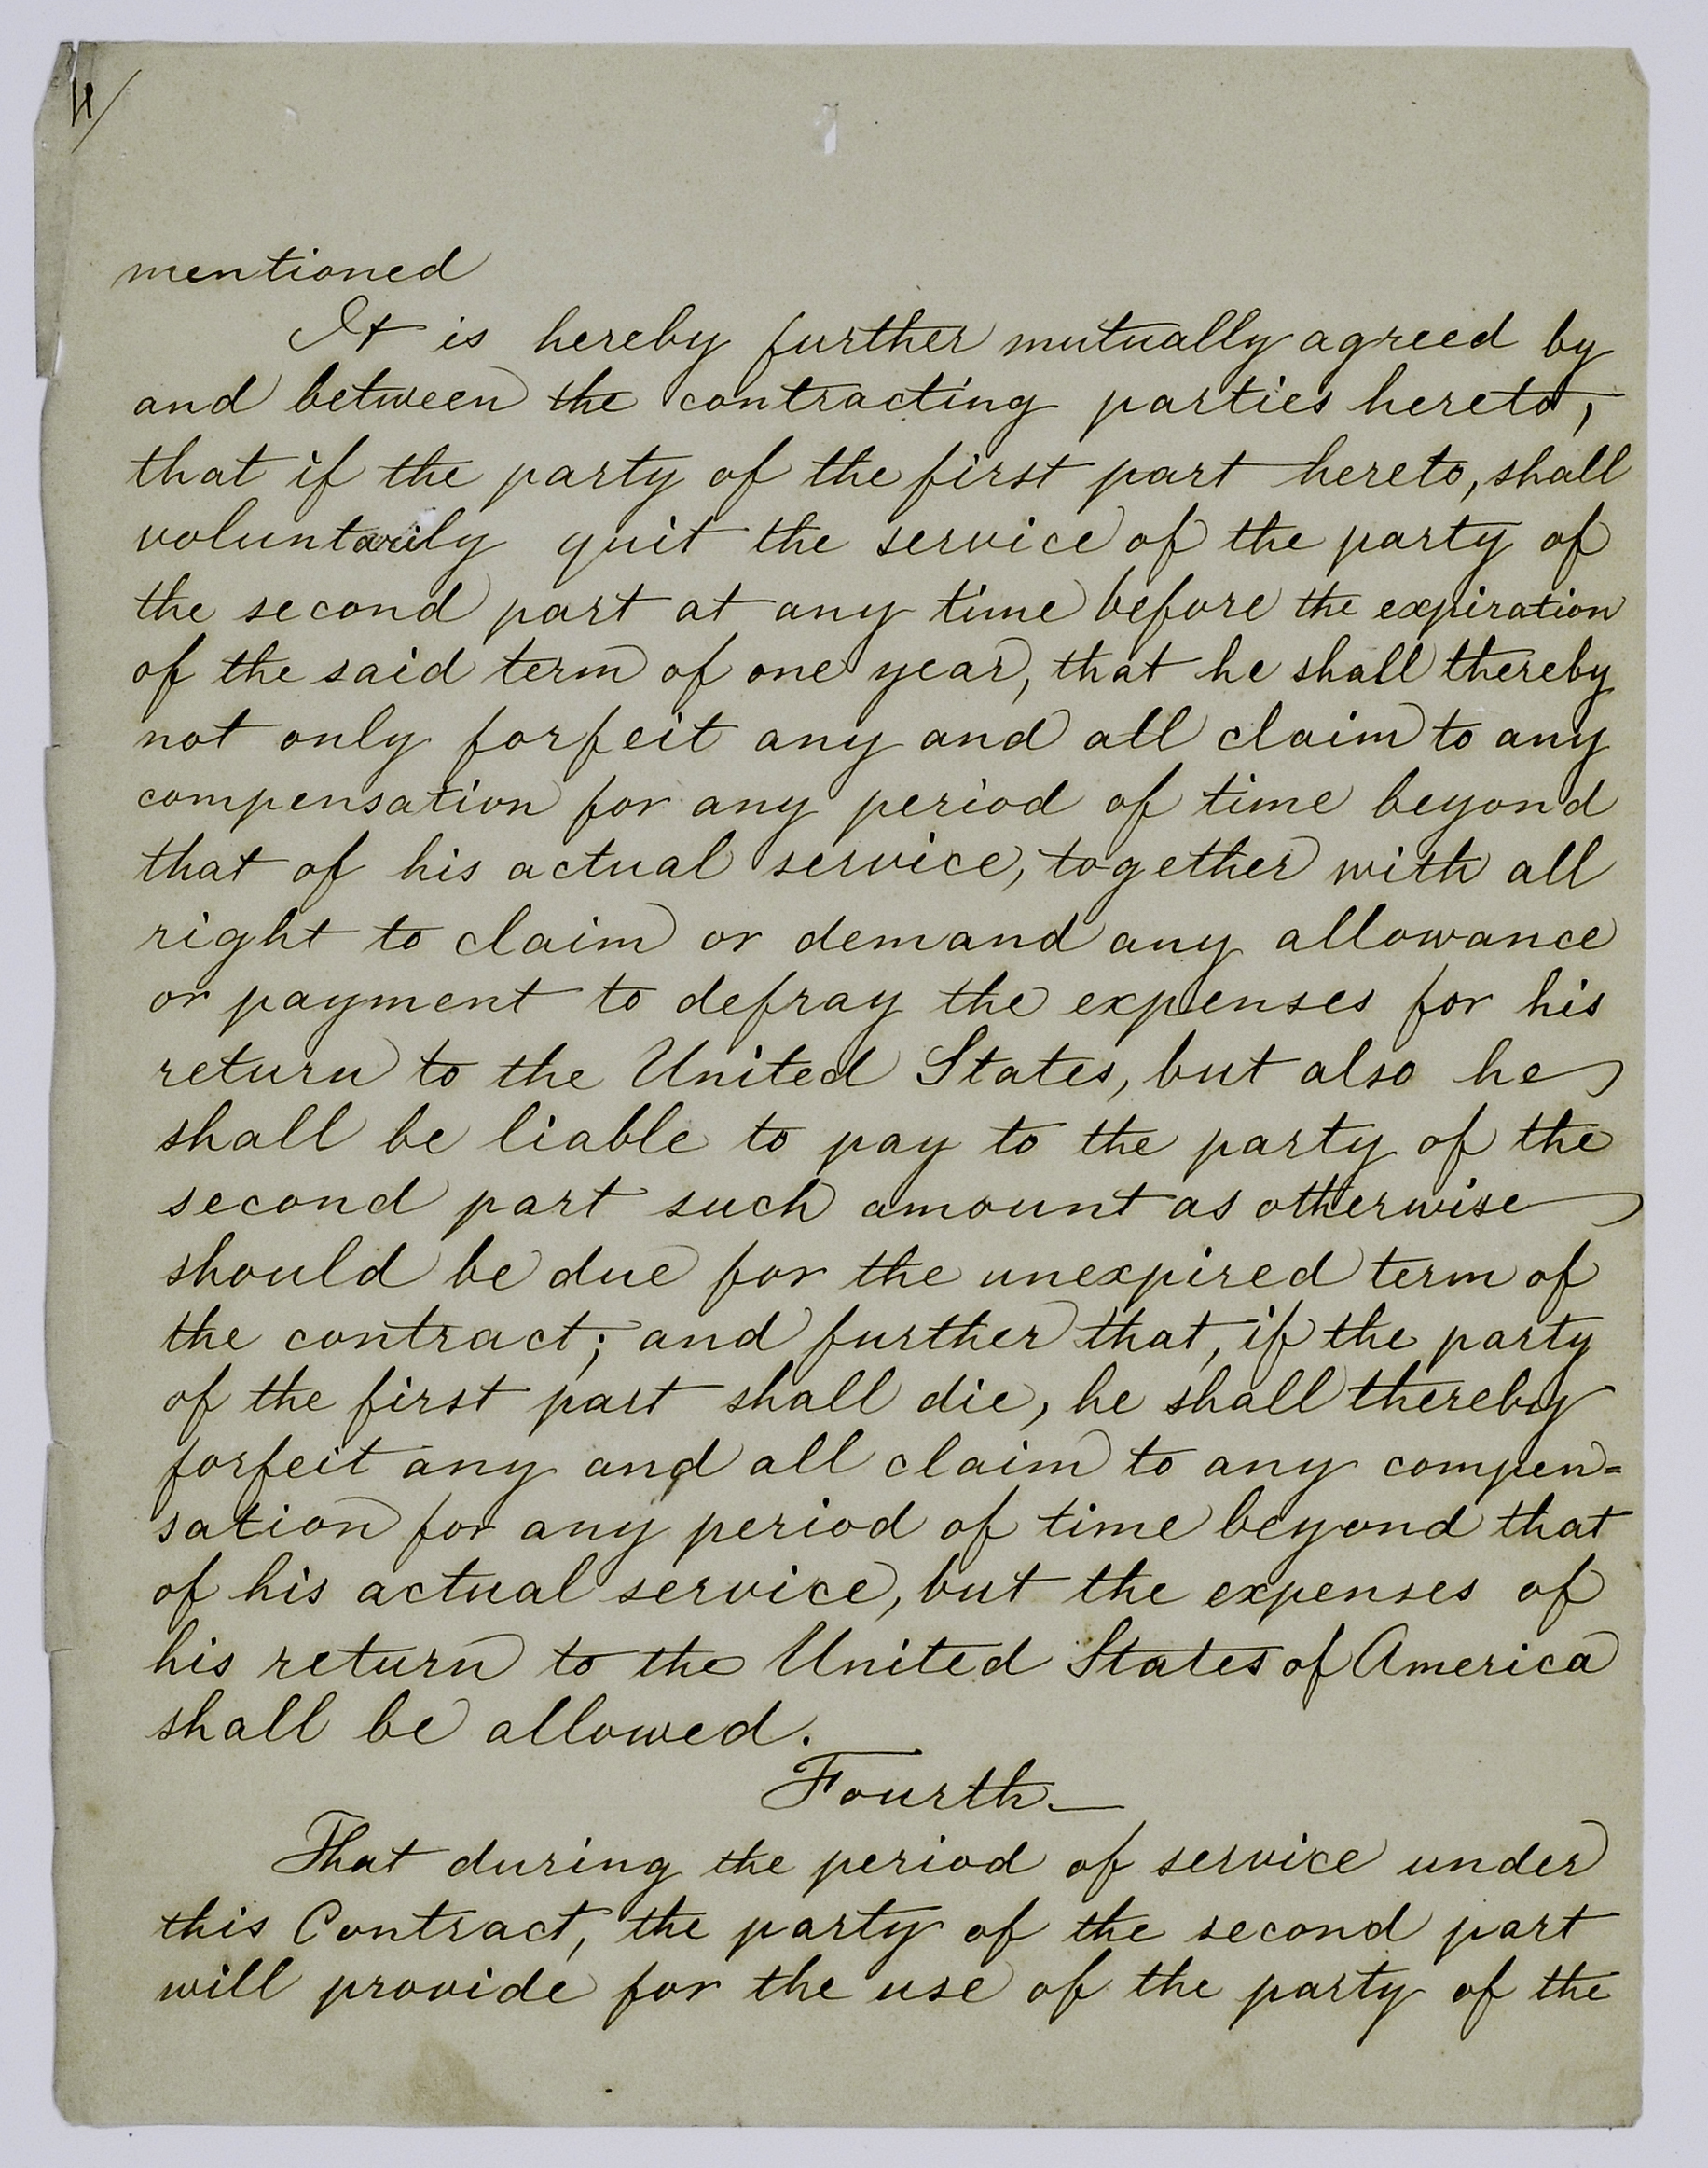 4/
mentioned
It is hereby further mutually agreed by
and between the contracting parties hereto,
that if the party of the first part hereto, shall
voluntarily quit the service of the party of
the second part at any time before the expiration
of the said term of one year, that he shall thereby
not only forfeit any and all claim to any
compensation for any period of time beyond
that of his actual service, together with all
right to claim or demand any allowance
or payment to defray the expenses for his
return to the United States, but also he
shall be liable to pay to the party of the
second part such amount as otherwise
should be due for the unexpired term of
the contract; and further that, if the party
of the first part shall die, he shall thereby
forfeit any and all claim to any compen=
sation for any period of time beyond that
of his actual service, but the expenses of
his return to the United States of America
shall be allowed.
Fourth—
That during the period of service under
this Contract, the party of the second part
will provide for the use of the party of the